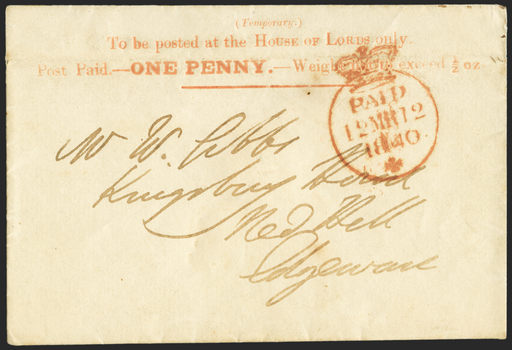 (Temporary.)
To be posted at the HOUSE OF LORDS only.
Post Paid.—ONE PENNY.—Weight not to exceed ½ oz
PAID
12 MR 12
1840
Mr W. Gibbs
Kingsbury
Red Hill
Edgeware